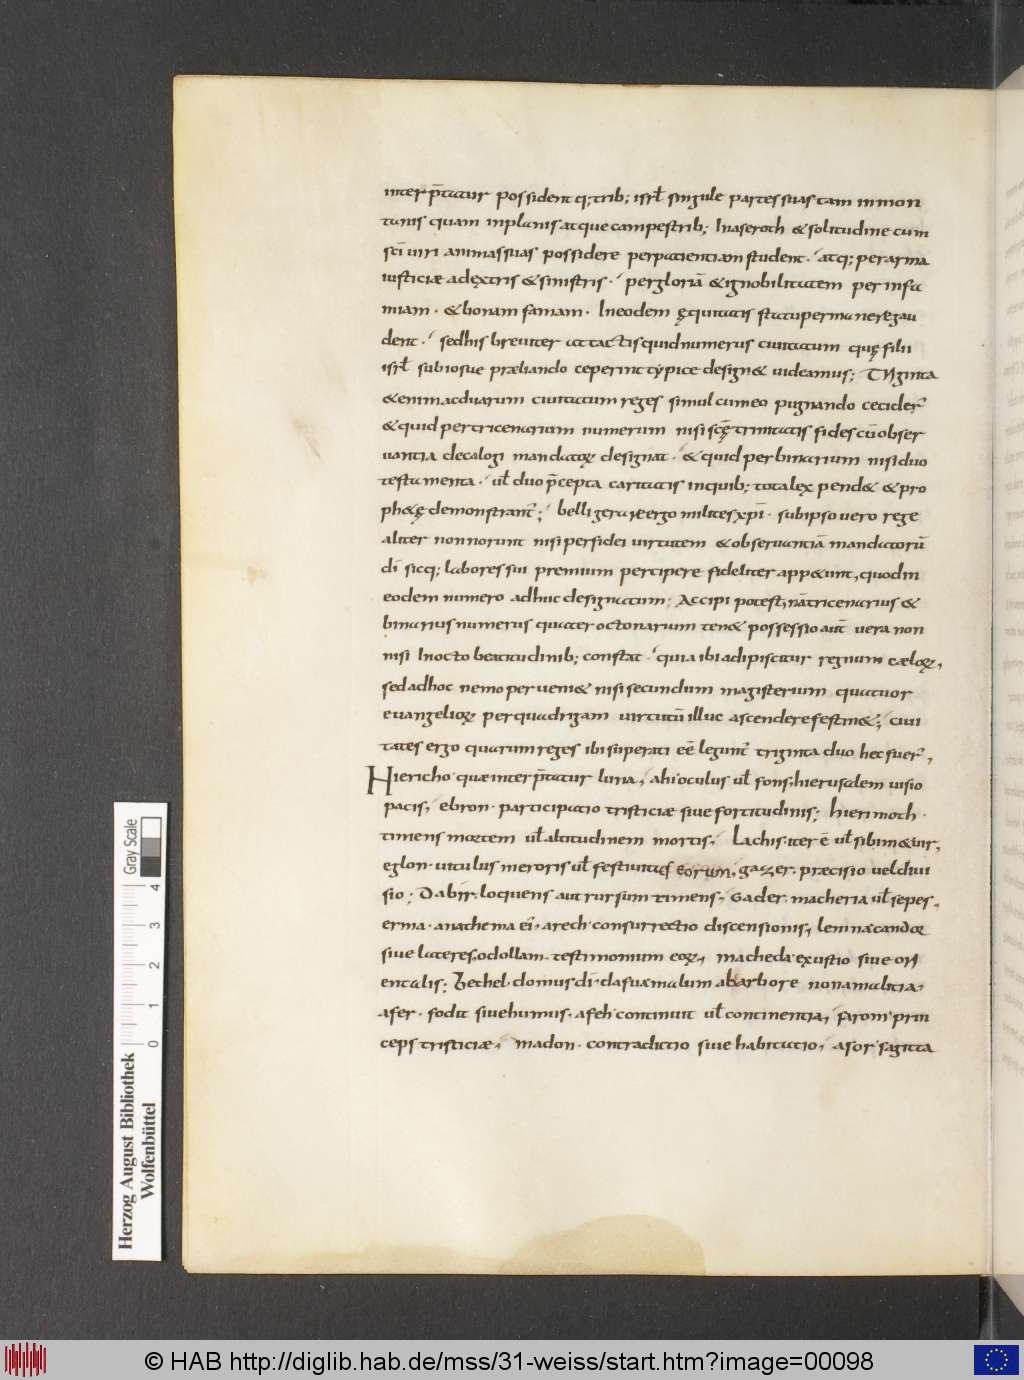 interp̄tatur possident q; trib; isrl̄ singule partes suas tam in mon
tanis quam in planis atque campestrib; In aseroth & solitudine cum
sc̄i viri animas suas possidere per patientiam student · atq; per arma
iusticiæ a dextris & sinistris · per gloriā & ignobilitatem per infa
miam · & bonam famam · In eodem ęquitatis statu permanere gau
dent · sed his breviter attactis quid numerus civitatum quę filii
isrl̄ sub iosue præliando ceperint typice design& videamus; Triginta
& enim ac duarum civitatum reges simul cum eo pugnando cecider̄
& quid per tricenarium numerum nisi sc̄ę trinitatis fides cū obser
vantia decalogi mandatoꝝ designat · & quid per binarium nisi duo
testamenta · vl̄ duo p̄cepta caritatis in quib; tota lex pend& & pro
ph&ę demonstrant̄; belligerare ergo milites xp̄i · sub ipso vero rege
aliter non norunt nisi per fidei virtutem & observantiā mandatorū
dī sicq; labores sui premium percipere fideliter app&unt, quod in
eodem numero adhuc designatum; Accipi potest, nā tricenarius &
binarius numerus quater octonarium ten& possessio aut̄ vera non
nisi In octo beatitudinib; constat · quia ibi adipiscitur regnum cæloꝝ,
sed ad hoc nemo perveni& nisi secundum magisterium quatuor
evangelioꝝ per quadrigam virtutū illuc ascendere festin&; civi
tates ergo quarum reges ibi superati eē legunt̄ triginta duo hec fuer̄,
Hiericho quæ interp̄tatur luna, ahi oculus vl̄ fons, hierusalem visio
pacis, ebron · participatio tristiciæ sive fortitudinis; hierimoth ·
timens mortem vl̄ altitudinem mortis, Lachis · iter ē vl̄ sibim& vir,
eglon · vitulus meroris vl̄ festivitas eorum, gazer · præcisio vel divi
sio; Dabir · loquens aut rursum timens, Gader · macheria vl̄ sepes ·
erma · anathema ei · arech consurrectio discensionis, lemna candor
sive lateres, odollam · testimonium eoꝝ, macheda exustio sive ori
entalis; Bethel · domus dī · dafua malum ab arbore non a malitia,
afer · fodit sive humus, afeh continuit vl̄ continentia, saron prin
ceps tristiciæ, madon · contradictio sive habitatio, asor sagitta
Herzog August Bibliothek
Wolfenbüttel
0 1 2 3 4
Gray Scale
© HAB http://diglib.hab.de/mss/31-weiss/start.htm?image=00098